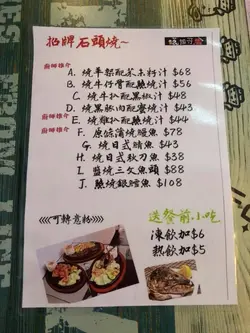 招牌石頭燒~
廚師推介
A. 燒羊架配茶木料汁 $68
B. 燒牛仔骨配燒汁 $56
C. 燒牛扒配黑椒汁 $44
D. 燒黑豚肉配蜜燒汁 $43
廚師推介
E. 燒雞扒配燒汁 $44
廚師推介
F. 原條蒲燒鰻魚 $78
G. 燒日式鯖魚 $43
H. 燒日式秋刀魚 $38
I. 鹽燒三文魚頭 $88
J. 燒銀鱈魚 $108
《《《可轉意粉》》》
送餐前小吃
凍飲加$6
熱飲加$5